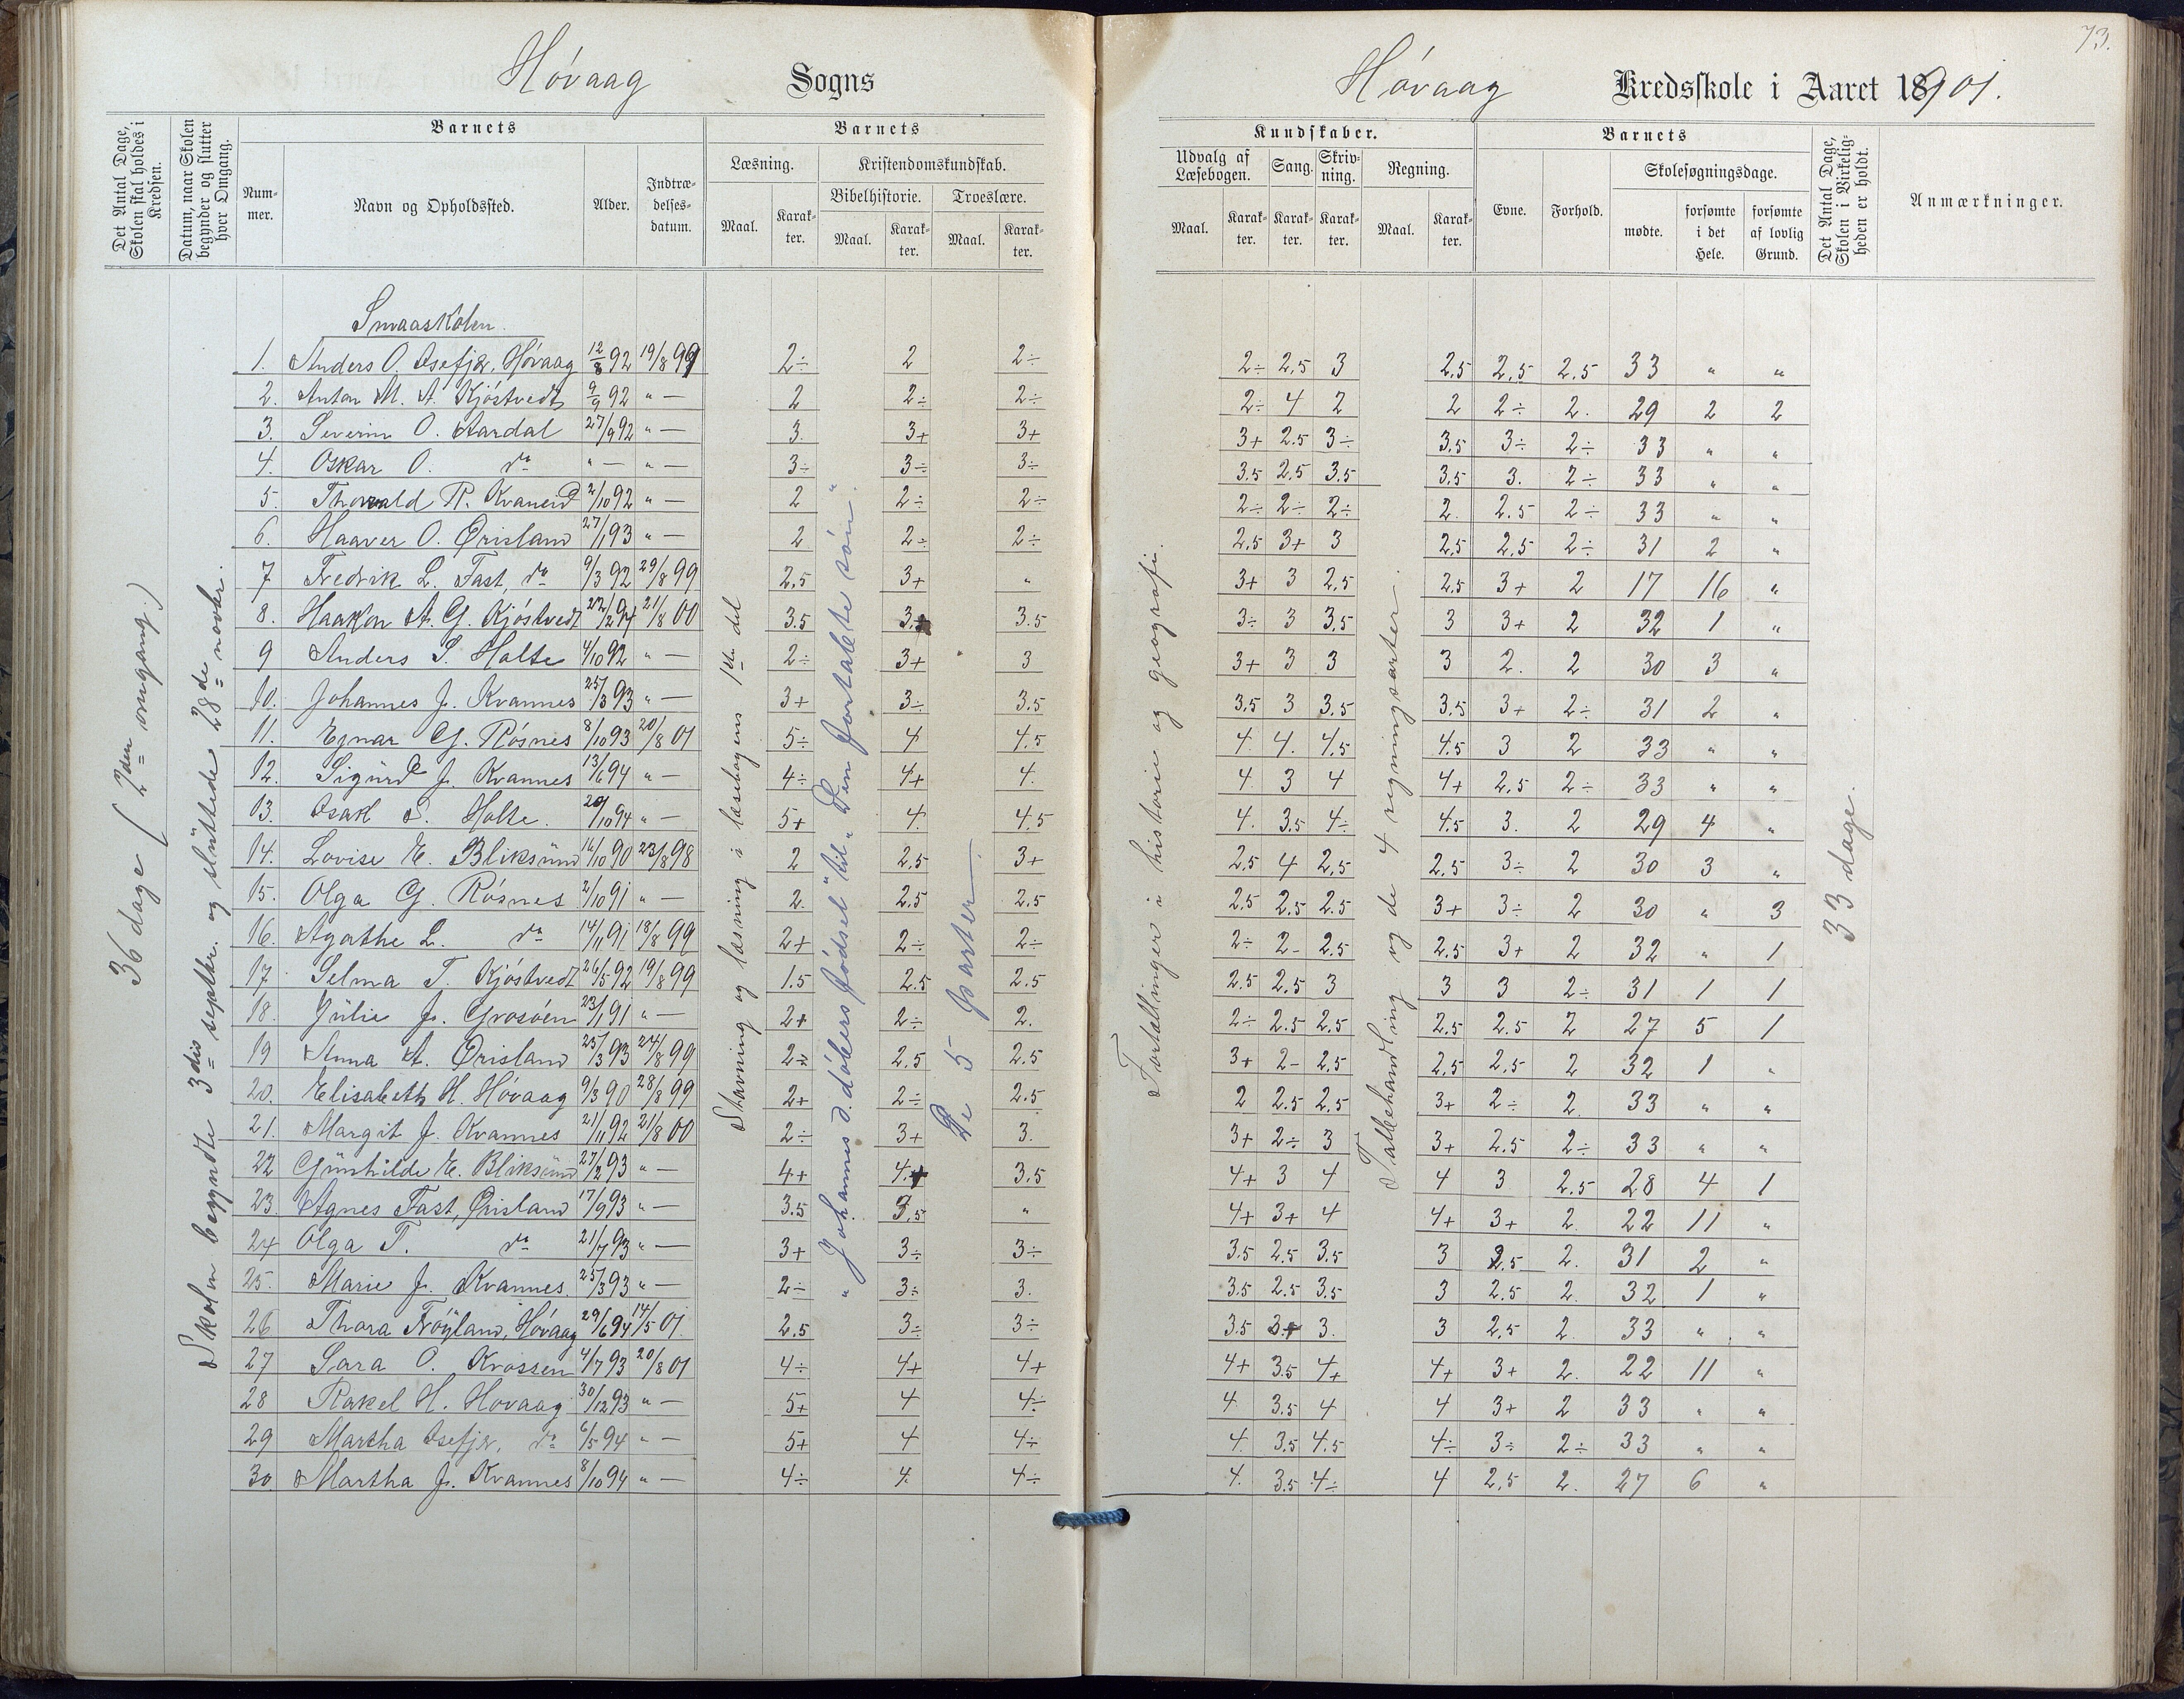 73.
Høvaag Sogns
Høvaag Kredsskole i Aaret 1901.
Det Antal Dage, Skolen skal holdes i Kredsen.
Datum, naar Skolen begynder og slutter hver Omgang.
Barnets
Num-mer.
Navn og Opholdssted.
Alder.
Indtræ-delses-datum.
Barnets
Læsning.
Maal.
Karak-ter.
Kristendomskundskab.
Bibelhistorie.
Maal.
Karak-ter.
Troeslære.
Maal.
Karak-ter.
Kundskaber.
Udvalg af Læsebogen.
Maal.
Karak-ter.
Sang.
Karak-ter.
Skriv-ning.
Karak-ter.
Regning.
Maal.
Karak-ter.
Barnets
Evne.
Forhold.
Skolesøgningsdage.
mødte.
forsømte i det Hele.
forsømte af lovlig Grund.
Det Antal Dage, Skolen i Virkelig-heden er holdt.
Anmærkninger.
36 dage (2den omgang.)
Skolen begyndte 3dis septbr. og sluttede 28de novbr.
Stavning og læsning i læsebogens 1ste del
"Johannes d. døbers fødsel" til "Den fortabte søn".
De 5 parter
Fortællinger i historie og geografi.
Talbehandling og de 4 regningsarter.
33 dage.
Smaaskolen.
1. Anders O. Osefjær, Høvaag 12/8 92 19/8 99 2÷ 2 2÷ 2÷ 2,5 3 2,5 2,5 2.5 33 " "
2. Anton M. A. Kjøstvedt 9/9 92 " — 2 2÷ 2÷ 2÷ 4 2 2 2÷ 2. 29 2 2
3. Severin O. Aardal 27/9 92 " — 3. 3+ 3+ 3+ 2.5 3÷ 3,5 3÷ 2÷ 33 " "
4. Oskar O. do " — " — 3÷ 3÷ 3÷ 3.5 2.5 3.5 3,5 3. 2÷ 33 " "
5. Thorvald R. Kvannes 2/10 92 " — 2 2÷ 2÷ 2÷ 2÷ 2÷ 2. 2.5 2÷ 33 " "
6. Haaver O. Ørisland 27/1 93 " — 2 2÷ 2÷ 2,5 3+ 3 2,5 2,5 2÷ 31 2 "
7 Fredrik L. Fast, do 9/3 92 29/8 99 2,5 3+ " 3+ 3 2,5 2,5 3+ 2 17 16 "
8. Haakon A. G. Kjøstvedt 22/2 94 21/8 00 3.5 3+ 3.5 3÷ 3 3,5 3 3+ 2 32 1 "
9 Anders S. Holte 4/10 92 " — 2÷ 3+ 3 3+ 3 3 3 2. 2 30 3 "
10. Johannes J. Kvannes 25/3 93 " — 3+ 3÷ 3.5 3,5 3 3.5 3,5 3+ 2÷ 31 2 "
11. Egnar G. Røsnes 8/10 93 20/8 01 5÷ 4 4.5 4. 4. 4.5 4.5 3 2 33 " "
12. Sigurd J. Kvannes 13/6 94 " — 4÷ 4+ 4. 4. 3 4 4+ 2,5 2÷ 33 " "
13. Isak S. Holte. 20/10 94 " — 5+ 4. 4.5 4. 3.5 4÷ 4.5 3. 2 29 4 "
14. Lovise E. Bliksund 16/10 90 23/8 98 2 2,5 3+ 2,5 4 2,5 2,5 3÷ 2 30 3 "
15. Olga G. Røsnes 2/10 91 " — 2. 2.5 2.5 2.5 2.5 2.5 3+ 3÷ 2 30 " 3
16. Agathe L. do 14/11 91 18/8 99 2+ 2÷ 2÷ 2÷ 2- 2.5 2.5 3+ 2 32 " 1
17. Selma T. Kjøstvedt 26/5 92 19/8 99 1.5 2.5 2.5 2.5 2.5 3 3 3 2÷ 31 1 1
18. Julie J. Grosøen 23/1 91 " — 2+ 2÷ 2. 2÷ 2.5 2.5 2.5 2.5 2 27 5 1
19 Anna A. Ørisland 25/3 93 24/8 99 2÷ 2,5 2.5 3+ 2- 2,5 2,5 2,5 2 32 1 "
20. Elisabeth H. Høvaag 9/3 90 28/8 99 2+ 2÷ 2.5 2 2.5 2.5 3+ 2÷ 2 33 " "
21. Margit J. Kvannes 21/11 92 21/8 00 2÷ 3+ 3. 3+ 2÷ 3 3+ 2.5 2÷ 33 " "
22 Gunhilde E. Bliksund 27/2 93 " — 4+ 4+ 3.5 4+ 3 4 4 3 2.5 28 4 1
23. Agnes Fast, Ørisland 17/9 93 " — 3.5 3.5 " 4+ 3+ 4 4+ 3+ 2. 22 11 "
24 Olga T. do 21/7 93 " — 3+ 3÷ 3÷ 3.5 2.5 3.5 3 2.5 2. 31 2 "
25. Marie J. Kvannes. 25/3 93 " — 2÷ 3÷ 3. 3.5 2.5 3.5 3 2.5 2. 32 1 "
26 Thora Frøyland, Høvaag 29/6 94 14/5 01. 2.5 3÷ 3÷ 3.5 3+ 3. 3 2,5 2. 33 " "
27 Sara O. Krossen 4/7 93 20/8 01 4÷ 4+ 4+ 4+ 3.5 4+ 4+ 3+ 2. 22 11 "
28 Rakel H. Hovaag 30/12 93 " — 5+ 4 4÷ 4 3.5 4 4 3+ 2 33 " "
29 Martha Osefjær, do 6/5 94 " — 5+ 4 4÷ 4. 3.5 4.5 4÷ 3÷ 2÷ 33 " "
30 Martha J. Kvannes 8/10 94 " — 4÷ 4. 4÷ 4. 3.5 4÷ 4 2,5 2. 27 6 "